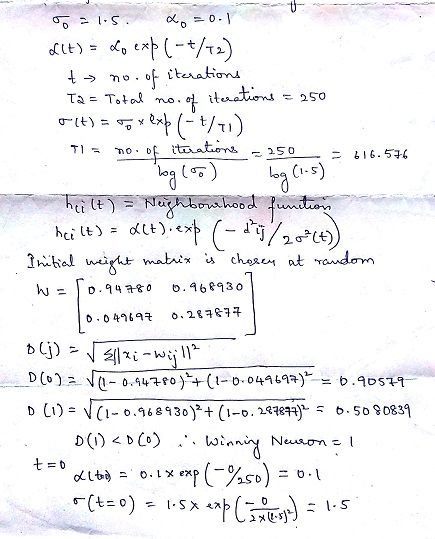 σ₀ = 1.5. α₀ = 0.1
α(t) = α₀ exp(-t/T2)
t → no. of iterations
T2 = Total no. of iterations = 250
σ(t) = σ₀ * exp(-t/T1)
T1 = no. of iterations / log(σ₀) = 250 / log(1.5) = 616.576
hci(t) = Neighbourhood function
hci(t) = α(t). exp(-d²ij / 2σ²(t))
Initial weight matrix is chosen at random
W = [0.94780 0.968930
0.049697 0.287877]
D(j) = √Σ||xi - wij||²
D(0) = √(1-0.94780)² + (1-0.049697)² = 0.90579
D(1) = √(1-0.968930)² + (1-0.287877)² = 0.5080839
D(1) < D(0) ∴ Winning Neuron = 1
t=0
α(t=0) = 0.1 x exp(-0/250) = 0.1
σ(t=0) = 1.5 x exp(-0 / 2x(1.5)²) = 1.5